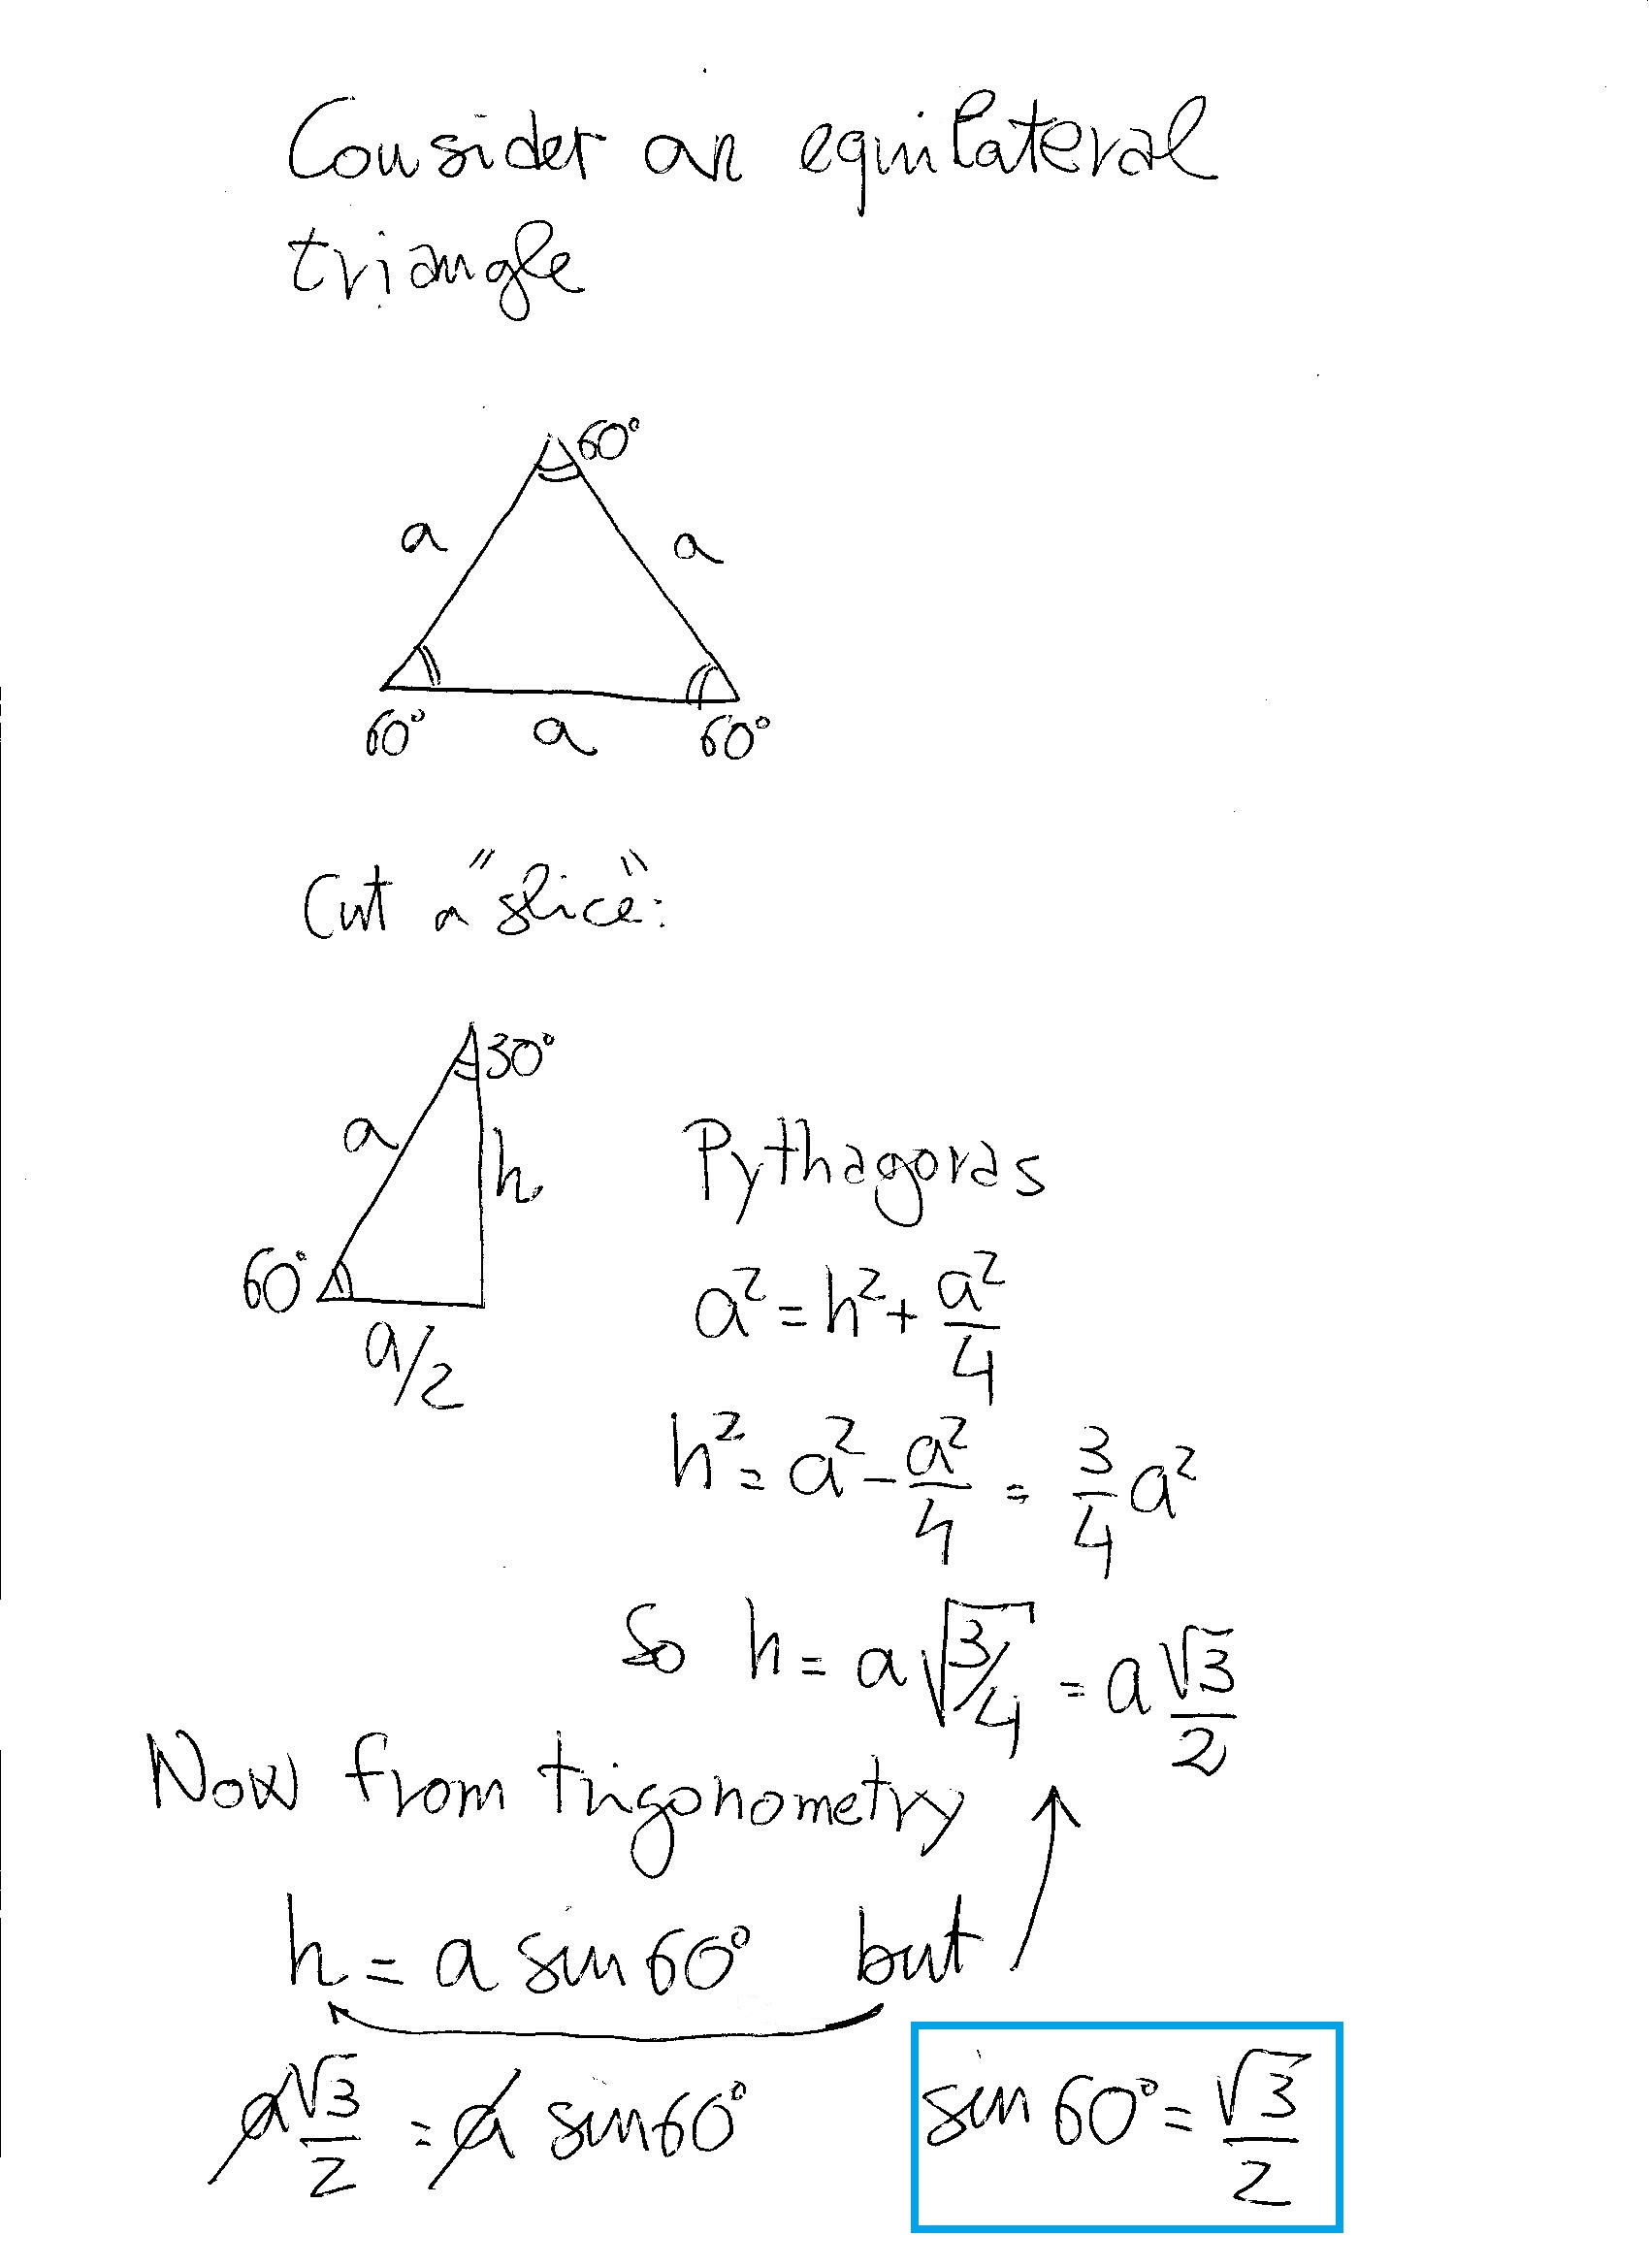 Consider an equilateral
triangle
60°
a a
60° a 60°
Cut a "slice":
30°
a h
60°
a/2
Pythagoras
a² = h² + a²/4
h² = a² - a²/4 = 3/4 a²
So h = a √3/4 = a √3/2
Now from trigonometry
h = a sin 60° but
a √3/2 = a sin 60°
sin 60° = √3/2